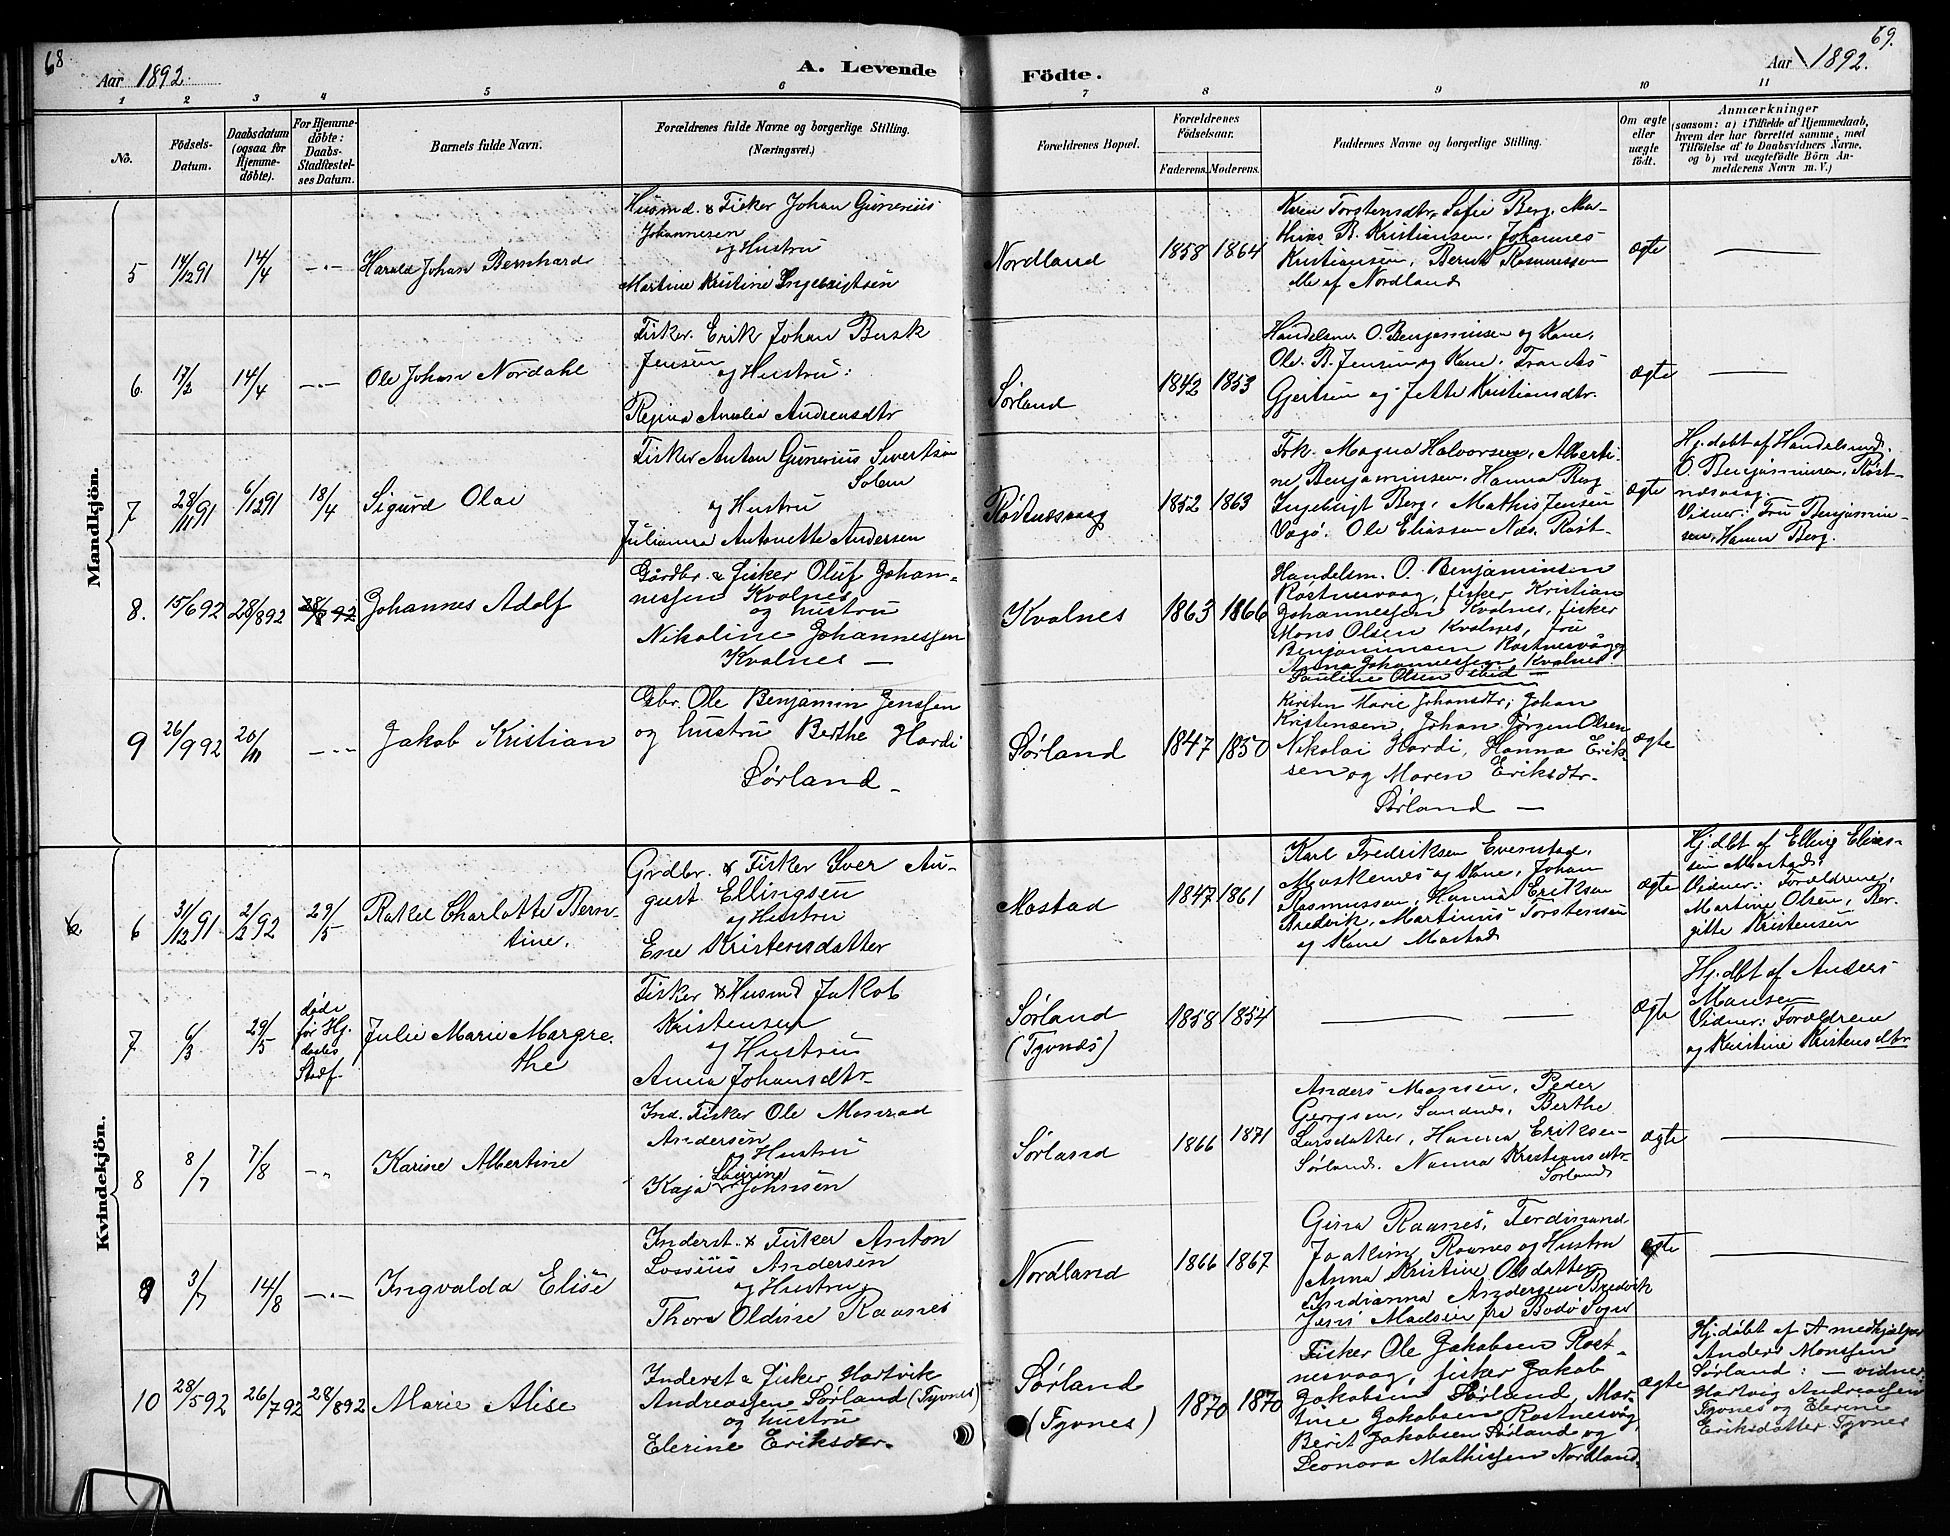 68
Aar 1892.
A. Levende
Födte.
Aar 1892.
69.
1 2 3 4 5 6 7 8 9 10 11
No.
Födsels-
Datum.
Daabsdatum
(ogsaa for
Hjemme-
døbte).
For Hjemme-
döbte:
Daabs-
Stadfæstel-
ses Datum.
Barnets fulde Navn.
Forældrenes fulde Navne og borgerlige Stilling.
(Næringsvei.)
Forældrenes Bopæl.
Forældrenes
Födselsaar.
Faderens. Moderens.
Faddernes Navne og borgerlige Stilling.
Om ægte
eller
uægte
födt.
Anmærkninger
(saasom: a) i Tilfælde af Hjemmedaab,
hvem der har forrettet samme, med
Tilföielse af to Daabsvidners Navne,
og b) ved uægtefödte Börn An-
melderens Navn m. V.)
Mandkjön.
5
14/12 91
14/4
— " —
Harald Johan Bernhard
Husmd. & Fisker Johan Gunerius
Johannesen
og Hustru
Martine Kristine Ingebrigtsen
Nordland
1858 1864
Karen Torstensdtr, Sofie Berg, Ma-
thias B. Kristiansen, Johannes
Kristiansen, Bernt Rasmussen
alle af Nordland
ægte
—
6.
17/2
14/4
— " —
Ole Johan Nordahl
Fisker Erik Johan Busk
Jensen
og Hustru:
Regina Amalia Andreasdtr
Sørland
1842 1853
Handelsm. O. Benjaminsen og Kone,
Ole B. Jensen og Kone, Frands
Gjertsen og Jette Kristiansdtr.
ægte
—
7
28/11 91
6/12 91
18/4
Sigurd Olai
Fisker Anton Gunerius Sivertsen
Solem
og Hustru
Julianna Antonette Andersen
Røstnesvaag
1852 1863
Frk. Magna Halvorsen, Alberti-
ne Benjaminsen, Hanna Berg
Ingebrigt Berg, Mathis Jensen
Vagø. Ole Eliassen Nes. Røst-
ægte
Hj. døbt af Handelsmd.
O Benjaminsen, Røst-
nesvaag.
Vidner: Fru Benjamin-
sen, Hanna Berg.
8.
15/6 92
28/8 92
28/8 92
Johannes Adolf
Gårdbr. & fisker Oluf Johan-
nessen Kvalnes
og hustru
Nikoline Johannessen
Kvalnes —
Kvalnes
1863 1866
Handelsm. O. Benjaminsen
Røstnesvaag, fisker Kristian
Johannessen Kvalnes, fisker
Mons Olsen Kvalnes, fru
Benjaminsen Røstnesvåg og
Anna Johannessen Kvalnes
Pauline Olsen ibid —
9
26/9 92
20/11
— " —
Jakob Kristian
Gbr. Ole Benjamin Jenssen
og hustru Berthe Hardi
Sørland —
Sørland
1847 1850
Kirsten Marie Johansdtr, Johan
Kristensen, Johan Jørgen Olsen,
Nikolai Hardi, Hanna Erik-
sen og Maren Eriksdtr-
Sørland —
ægte
Kvindekjön.
6
31/12 91
2/2 92
29/5
Rakel Charlotte Bern-
tine.
Grdbr. & Fisker Iver Au-
gust Ellingsen
og Hustru
Ene Kristensdatter
Mostad
1847 1861
Karl Fredriksen Evenstad,
Moskenes og Kone, Johan
Rasmussen, Hanna Eriksen
Bredvik, Martinus Torstensen
og Kone Mostad
ægte
Hj. dbt af Elling Elias-
sen Mostad.
Vidner: Forældrene,
Martine Olsen, Bir-
gitte Kristensen
7
6/3
29/5
døde
før Hj.
daabs
Stadf.
Julie Marie Margre-
the
Fisker & Husmd Jakob
Kristensen
og Hustru
Anna Johansdtr
Sørland
(Tyvnes)
1858 1854
— —
ægte
Hj. dbt af Anders
Monsen
Vidner: Forældrene
og Kristine Kristensdtr
8
8/7
7/8
— " —
Karine Albertine
Ind. Fisker Ole Monrad
Andersen
og Hustru
Kaja Lovine Johnsen
Sørland
1866 1871
Anders Monsen, Peder
Georgsen, Sandnes, Berthe
Larsdatter, Hanna Eriksen
Sørland, Nanna Kristiansdtr-
Sørland
ægte
—
9
3/7
14/8
— " —
Ingvalda Elise
Inderst. & Fisker Anton
Lossius Andersen
og Hustru
Thora Oldine Raanes
Nordland
1866 1867
Gina Raanes, Ferdinand
Joakim Raanes og Hustru
Anna Kristine Olsdatter
Indianna Andersen Bredvik
Jens Madsen fra Bodø Sogn
ægte
—
10
28/5 92
26/7 92
28/8 92
Marie Alise
Inderst & fisker Hartvik
Andreassen Sørland (Tyvnes)
og hustru
Elerine Eriksdtr-
Sørland
(Tyvnes)
1870 1870
Fisker Ole Jakobsen Røst-
nesvaag, fisker Jakob
Jakobsen Sørland, Mar-
tine Jakobsen Røstnesvåg,
Berit Jakobsen Sørland og
Leonora Mathissen Nordland.
ægte
Hj. døbt af A medhjælper
Anders Monssen
Sørland: — vidner
Hartvig Andreassen
Tyvnes og Elerine
Eriksdatter Tyvnes